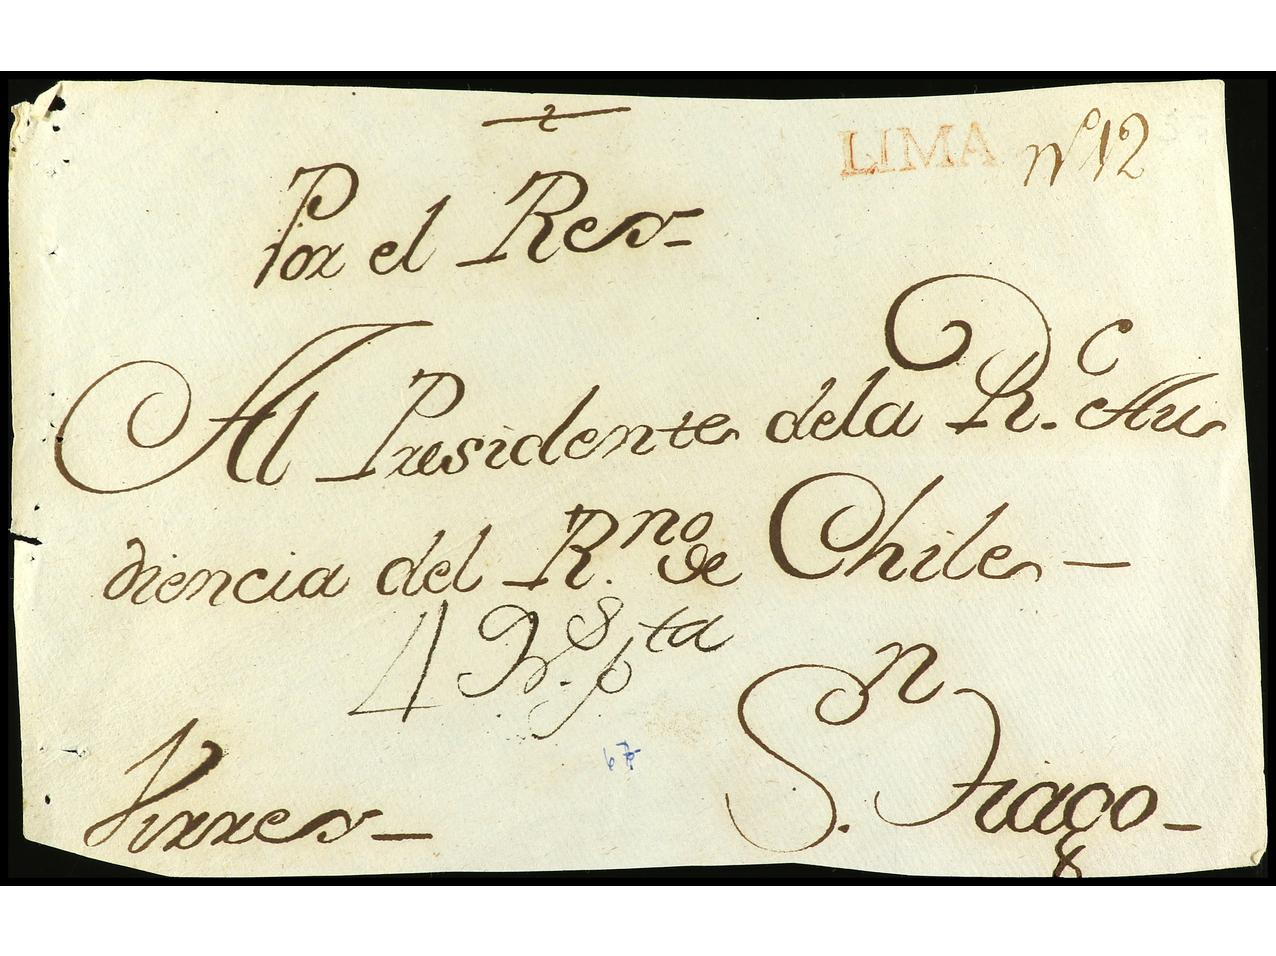 LIMA nº 12
Por el Rey
Al Presidente dela R.ᶜ Au
diencia del R.ⁿᵒ de Chile
Virrey
Sⁿ. Tiago